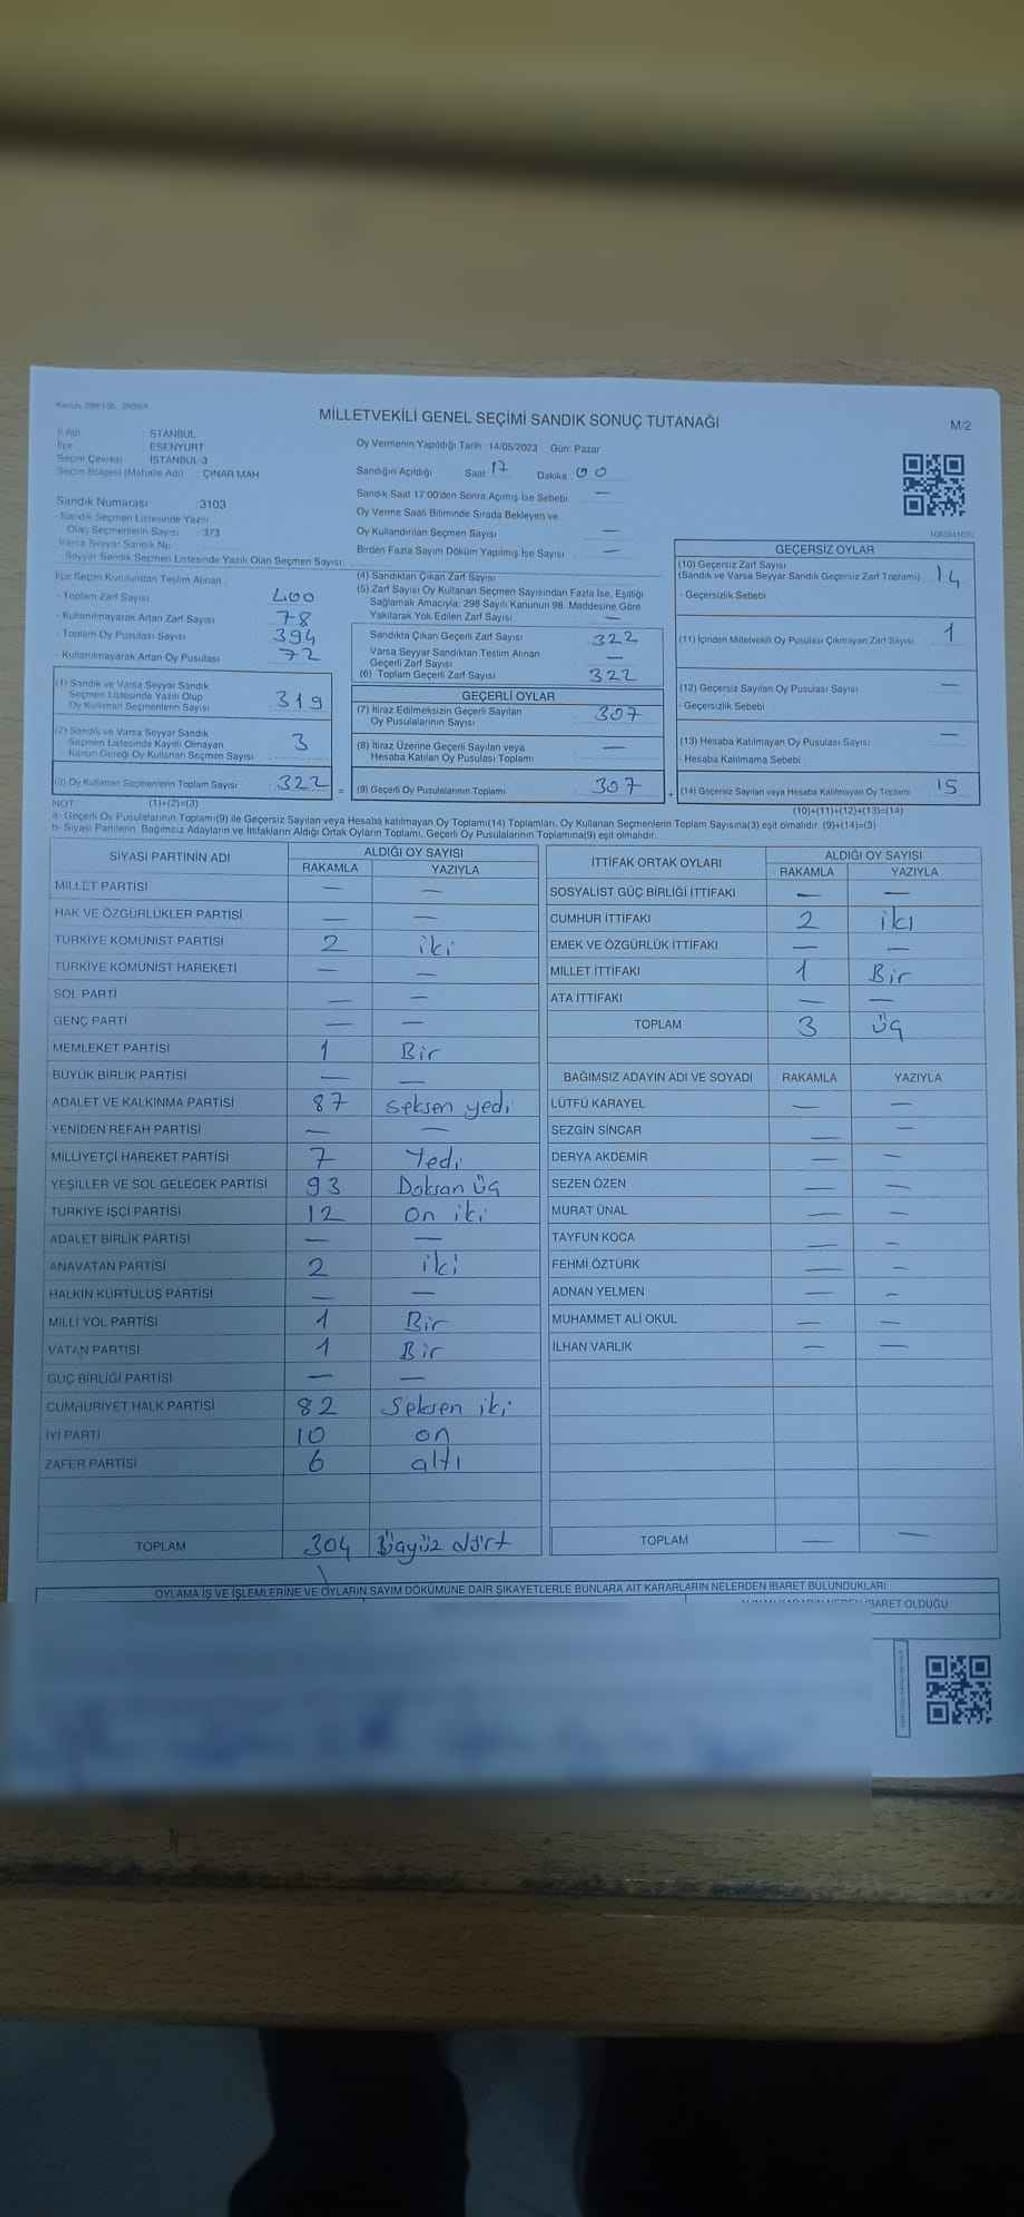 MİLLETVEKİLİ GENEL SEÇİMİ SANDIK SONUÇ TUTANAĞI
M/2
İSTANBUL
İlçe : ESENYURT
Seçim Çevresi : İSTANBUL-3
Seçim Bölgesi (Mahalle Adı) : ÇINAR MAH
Sandık Numarası : 3103
Sandık Seçmen Listesinde Yazılı
Olan Seçmenlerin Sayısı : 373
Varsa Seyyar Sandık No
Seyyar Sandık Seçmen Listesinde Yazılı Olan Seçmen Sayısı:
Oy Vermenin Yapıldığı Tarih : 14/05/2023 Gün: Pazar
Sandığın Açıldığı Saat 17 Dakika 00
Sandık Saat 17:00'den Sonra Açılmış İse Sebebi —
Oy Verme Saati Bitiminde Sırada Bekleyen ve
Oy Kullandırılan Seçmen Sayısı —
Birden Fazla Sayım Döküm Yapılmış İse Sayısı —
İlçe Seçim Kurulundan Teslim Alınan
- Toplam Zarf Sayısı 400
- Kullanılmayarak Artan Zarf Sayısı 78
- Toplam Oy Pusulası Sayısı 394
- Kullanılmayarak Artan Oy Pusulası 72
(1) Sandık ve Varsa Seyyar Sandık
Seçmen Listesinde Yazılı Olup
Oy Kullanan Seçmenlerin Sayısı 319
(2) Sandık ve Varsa Seyyar Sandık
Seçmen Listesinde Kayıtlı Olmayan
Kanun Gereği Oy Kullanan Seçmen Sayısı 3
(3) Oy Kullanan Seçmenlerin Toplam Sayısı 322 =
(4) Sandıktan Çıkan Zarf Sayısı
(5) Zarf Sayısı Oy Kullanan Seçmen Sayısından Fazla İse, Eşitliği
Sağlamak Amacıyla; 298 Sayılı Kanunun 98. Maddesine Göre
Yakılarak Yok Edilen Zarf Sayısı —
Sandıkta Çıkan Geçerli Zarf Sayısı 322
Varsa Seyyar Sandıktan Teslim Alınan
Geçerli Zarf Sayısı —
(6) Toplam Geçerli Zarf Sayısı 322
GEÇERLİ OYLAR
(7) İtiraz Edilmeksizin Geçerli Sayılan
Oy Pusulalarının Sayısı 307
(8) İtiraz Üzerine Geçerli Sayılan veya
Hesaba Katılan Oy Pusulası Toplamı —
(9) Geçerli Oy Pusulalarının Toplamı 307 +
GEÇERSİZ OYLAR
(10) Geçersiz Zarf Sayısı
(Sandık ve Varsa Seyyar Sandık Geçersiz Zarf Toplamı) 14
- Geçersizlik Sebebi
(11) İçinden Milletvekili Oy Pusulası Çıkmayan Zarf Sayısı 1
(12) Geçersiz Sayılan Oy Pusulası Sayısı —
- Geçersizlik Sebebi
(13) Hesaba Katılmayan Oy Pusulası Sayısı —
- Hesaba Katılmama Sebebi
(14) Geçersiz Sayılan veya Hesaba Katılmayan Oy Toplamı 15
NOT (1)+(2)=(3) (10)+(11)+(12)+(13)=(14)
a- Geçerli Oy Pusulalarının Toplamı(9) ile Geçersiz Sayılan veya Hesaba katılmayan Oy Toplamı(14) Toplamları, Oy Kullanan Seçmenlerin Toplam Sayısına(3) eşit olmalıdır. (9)+(14)=(3)
b- Siyasi Partilerin, Bağımsız Adayların ve İttifakların Aldığı Ortak Oyların Toplamı, Geçerli Oy Pusulalarının Toplamına(9) eşit olmalıdır.
SİYASİ PARTİNİN ADI ALDIĞI OY SAYISI
RAKAMLA YAZIYLA
MİLLET PARTİSİ — —
HAK VE ÖZGÜRLÜKLER PARTİSİ — —
TÜRKİYE KOMÜNİST PARTİSİ 2 iki
TÜRKİYE KOMÜNİST HAREKETİ — —
SOL PARTİ — —
GENÇ PARTİ — —
MEMLEKET PARTİSİ 1 Bir
BÜYÜK BİRLİK PARTİSİ — —
ADALET VE KALKINMA PARTİSİ 87 seksen yedi
YENİDEN REFAH PARTİSİ — —
MİLLİYETÇİ HAREKET PARTİSİ 7 Yedi
YEŞİLLER VE SOL GELECEK PARTİSİ 93 Doksan üç
TÜRKİYE İŞÇİ PARTİSİ 12 on iki
ADALET BİRLİK PARTİSİ — —
ANAVATAN PARTİSİ 2 iki
HALKIN KURTULUŞ PARTİSİ — —
MİLLİ YOL PARTİSİ 1 Bir
VATAN PARTİSİ 1 Bir
GÜÇ BİRLİĞİ PARTİSİ — —
CUMHURİYET HALK PARTİSİ 82 Seksen iki
İYİ PARTİ 10 on
ZAFER PARTİSİ 6 altı
TOPLAM 304 Üçyüz dört
İTTİFAK ORTAK OYLARI ALDIĞI OY SAYISI
RAKAMLA YAZIYLA
SOSYALİST GÜÇ BİRLİĞİ İTTİFAKI — —
CUMHUR İTTİFAKI 2 iki
EMEK VE ÖZGÜRLÜK İTTİFAKI — —
MİLLET İTTİFAKI 1 Bir
ATA İTTİFAKI — —
TOPLAM 3 üç
BAĞIMSIZ ADAYIN ADI VE SOYADI RAKAMLA YAZIYLA
LÜTFÜ KARAYEL — —
SEZGİN SİNCAR — —
DERYA AKDEMİR — —
SEZEN ÖZEN — —
MURAT ÜNAL — —
TAYFUN KOCA — —
FEHMİ ÖZTÜRK — —
ADNAN YELMEN — —
MUHAMMET ALİ OKUL — —
İLHAN VARLIK — —
TOPLAM — —
OYLAMA İŞ VE İŞLEMLERİNE VE OYLARIN SAYIM DÖKÜMÜNE DAİR ŞİKAYETLERLE BUNLARA AİT KARARLARIN NELERDEN İBARET BULUNDUKLARI
İBARET OLDUĞU